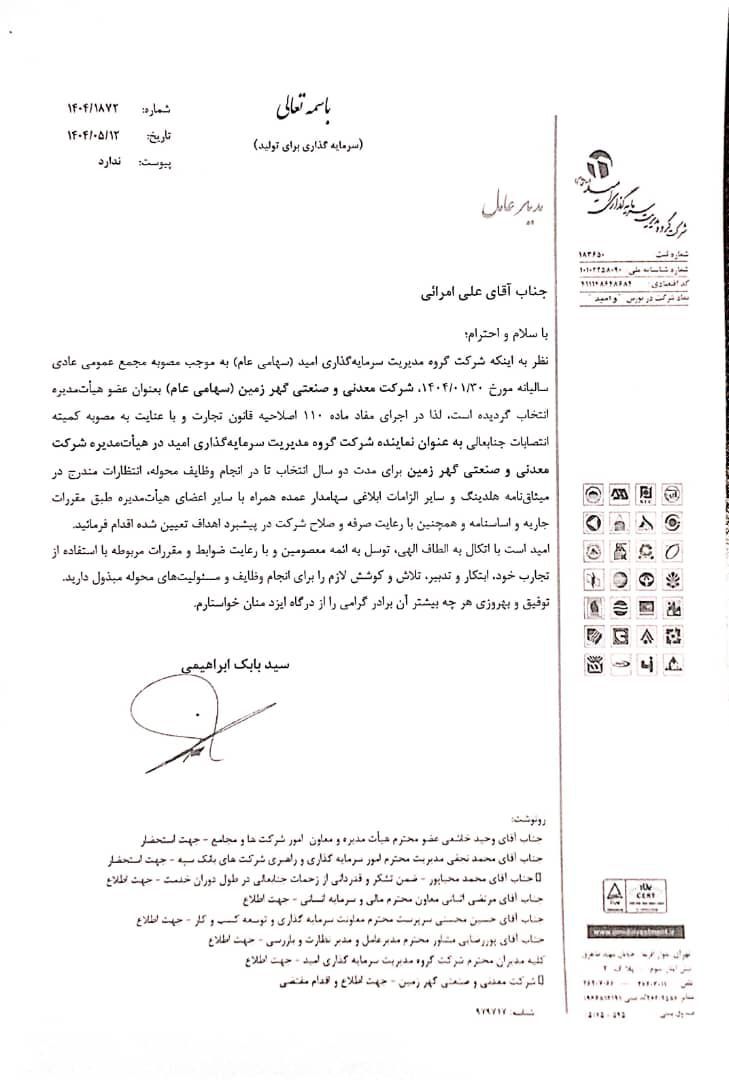 باسمه تعالی
(سرمایه گذاری برای تولید)
شماره: ۱۴۰۴/۱۸۷۲
تاریخ: ۱۴۰۴/۰۵/۱۲
پیوست: ندارد
شرکت گروه مدیریت سرمایه گذاری امید
شماره ثبت ۱۸۳۶۵۰
شماره شناسه ملی ۱۰۱۰۲۲۵۸۰۹۰
کد اقتصادی: ۴۱۱۱۲۸۶۴۸۶۸۴
نماد شرکت در بورس "وامید"
مدیر عامل
جناب آقای علی امرائی
با سلام و احترام؛
نظر به اینکه شرکت گروه مدیریت سرمایه‌گذاری امید (سهامی عام) به موجب مصوبه مجمع عمومی عادی
سالیانه مورخ ۱۴۰۴/۰۱/۳۰، شرکت معدنی و صنعتی گهر زمین (سهامی عام) بعنوان عضو هیأت‌مدیره
انتخاب گردیده است، لذا در اجرای مفاد ماده ۱۱۰ اصلاحیه قانون تجارت و با عنایت به مصوبه کمیته
انتصابات جنابعالی به عنوان نماینده شرکت گروه مدیریت سرمایه‌گذاری امید در هیأت‌مدیره شرکت
معدنی و صنعتی گهر زمین برای مدت دو سال انتخاب تا در انجام وظایف محوله، انتظارات مندرج در
میثاق‌نامه هلدینگ و سایر الزامات ابلاغی سهامدار عمده همراه با سایر اعضای هیأت‌مدیره طبق مقررات
جاریه و اساسنامه و همچنین با رعایت صرفه و صلاح شرکت در پیشبرد اهداف تعیین شده اقدام فرمائید.
امید است با اتکال به الطاف الهی، توسل به ائمه معصومین و با رعایت ضوابط و مقررات مربوطه با استفاده از
تجارب خود، ابتکار و تدبیر، تلاش و کوشش لازم را برای انجام وظایف و مسئولیت‌های محوله مبذول دارید.
توفیق و بهروزی هر چه بیشتر آن برادر گرامی را از درگاه ایزد منان خواستارم.
سید بابک ابراهیمی
رونوشت:
جناب آقای وحید خاشعی عضو محترم هیأت مدیره و معاون امور شرکت ها و مجامع - جهت استحضار
جناب آقای محمد نجفی مدیریت محترم امور سرمایه گذاری و راهبری شرکت های بانک سپه - جهت استحضار
جناب آقای محمد محیاپور - ضمن تشکر و قدردانی از زحمات جنابعالی در طول دوران خدمت - جهت اطلاع
جناب آقای مرتضی اثباتی معاون محترم مالی و سرمایه انسانی - جهت اطلاع
جناب آقای حسین محسنی سرپرست محترم معاونت سرمایه گذاری و توسعه کسب و کار - جهت اطلاع
جناب آقای پوررضایی مشاور محترم مدیرعامل و مدیر نظارت و بازرسی - جهت اطلاع
کلیه مدیران محترم شرکت گروه مدیریت سرمایه گذاری امید - جهت اطلاع
شرکت معدنی و صنعتی گهر زمین - جهت اطلاع و اقدام مقتضی
شناسه: ۹۷۹۷۱۷
TÜV
CERT
www.omidinvestment.ir